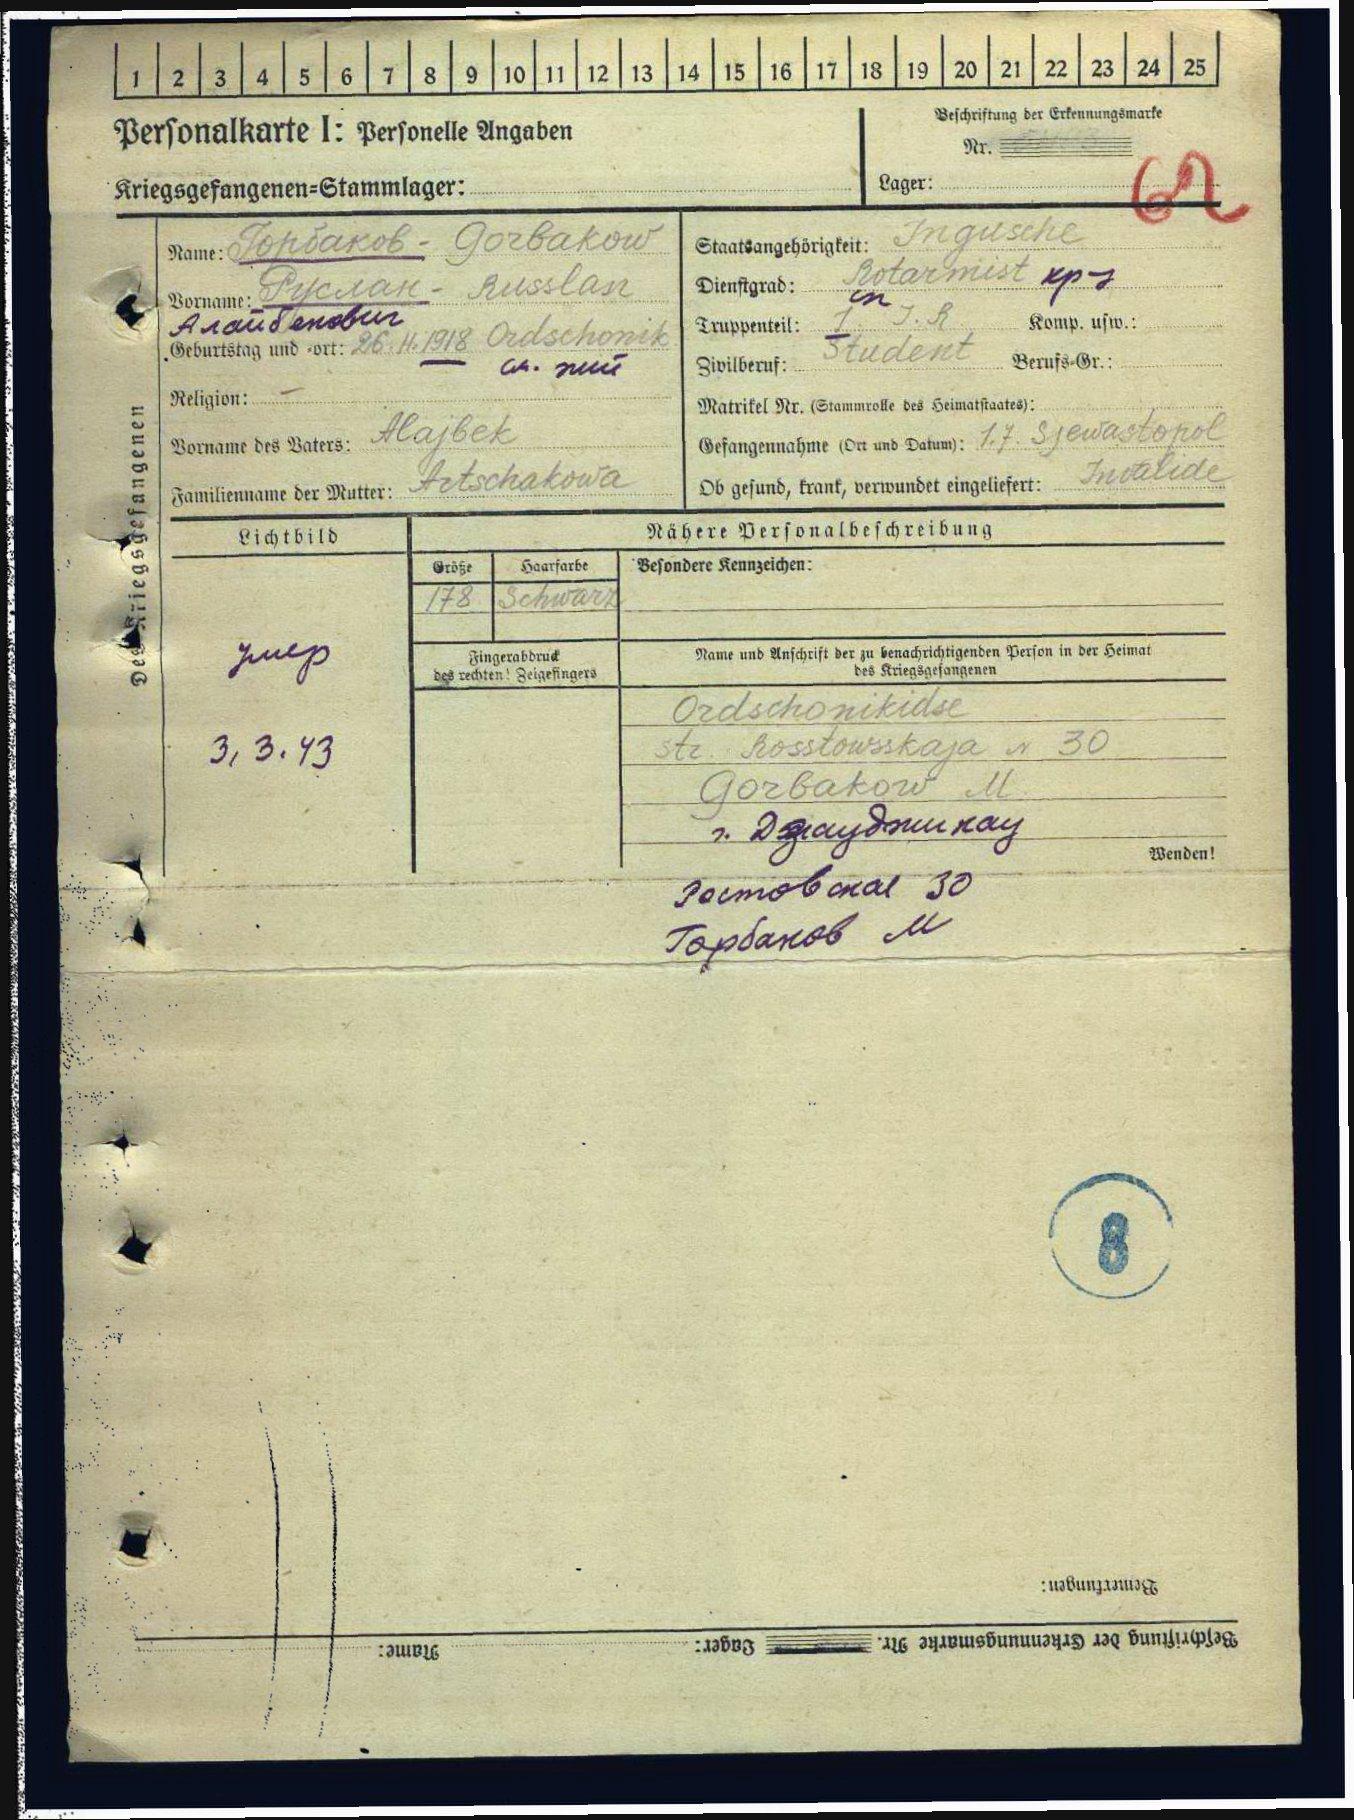 1 2 3 4 5 6 7 8 9 10 11 12 13 14 15 16 17 18 19 20 21 22 23 24 25
Personalkarte I: Personelle Angaben
Kriegsgefangenen=Stammlager:
Beschriftung der Erkennungsmarke
Nr.
Lager:
Des Kriegsgefangenen
Name: Горбаков - Gorbakow
Vorname: Руслан - Russlan
Алайбекович
Geburtstag und -ort: 26.11.1918 Ordschonik
Religion: —
Vorname des Vaters: Alajbek
Familienname der Mutter: Artschakowa
Staatsangehörigkeit: Ingusche
Dienstgrad: Rotarmist кр-ц
сп
Truppenteil: 1. I.R Komp. usw.:
Zivilberuf: Student Berufs=Gr.:
Matrikel Nr. (Stammrolle des Heimatstaates):
Gefangennahme (Ort und Datum): 1.7. Sjewastopol
Ob gesund, krank, verwundet eingeliefert: Invalide
Lichtbild
умер
3, 3. 43
Nähere Personalbeschreibung
Größe Haarfarbe Besondere Kennzeichen:
178 Schwarz
Fingerabdruck
des rechten! Zeigefingers
Name und Anschrift der zu benachrichtigenden Person in der Heimat
des Kriegsgefangenen
Ordschonikidse
str. Rosstowsskaja N 30
Gorbakow M.
г. Дзауджикау
Wenden!
Ростовская 30
Горбаков М
8
Bemerkungen:
Beschriftung der Erkennungsmarke Nr. Lager: Name: